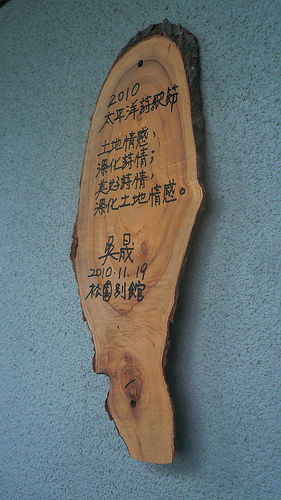 2010
太平洋詩歌節
土地情感、
深化詩情；
美好詩情，
深化土地情感。
吳晟
2010.11.19
松園別館